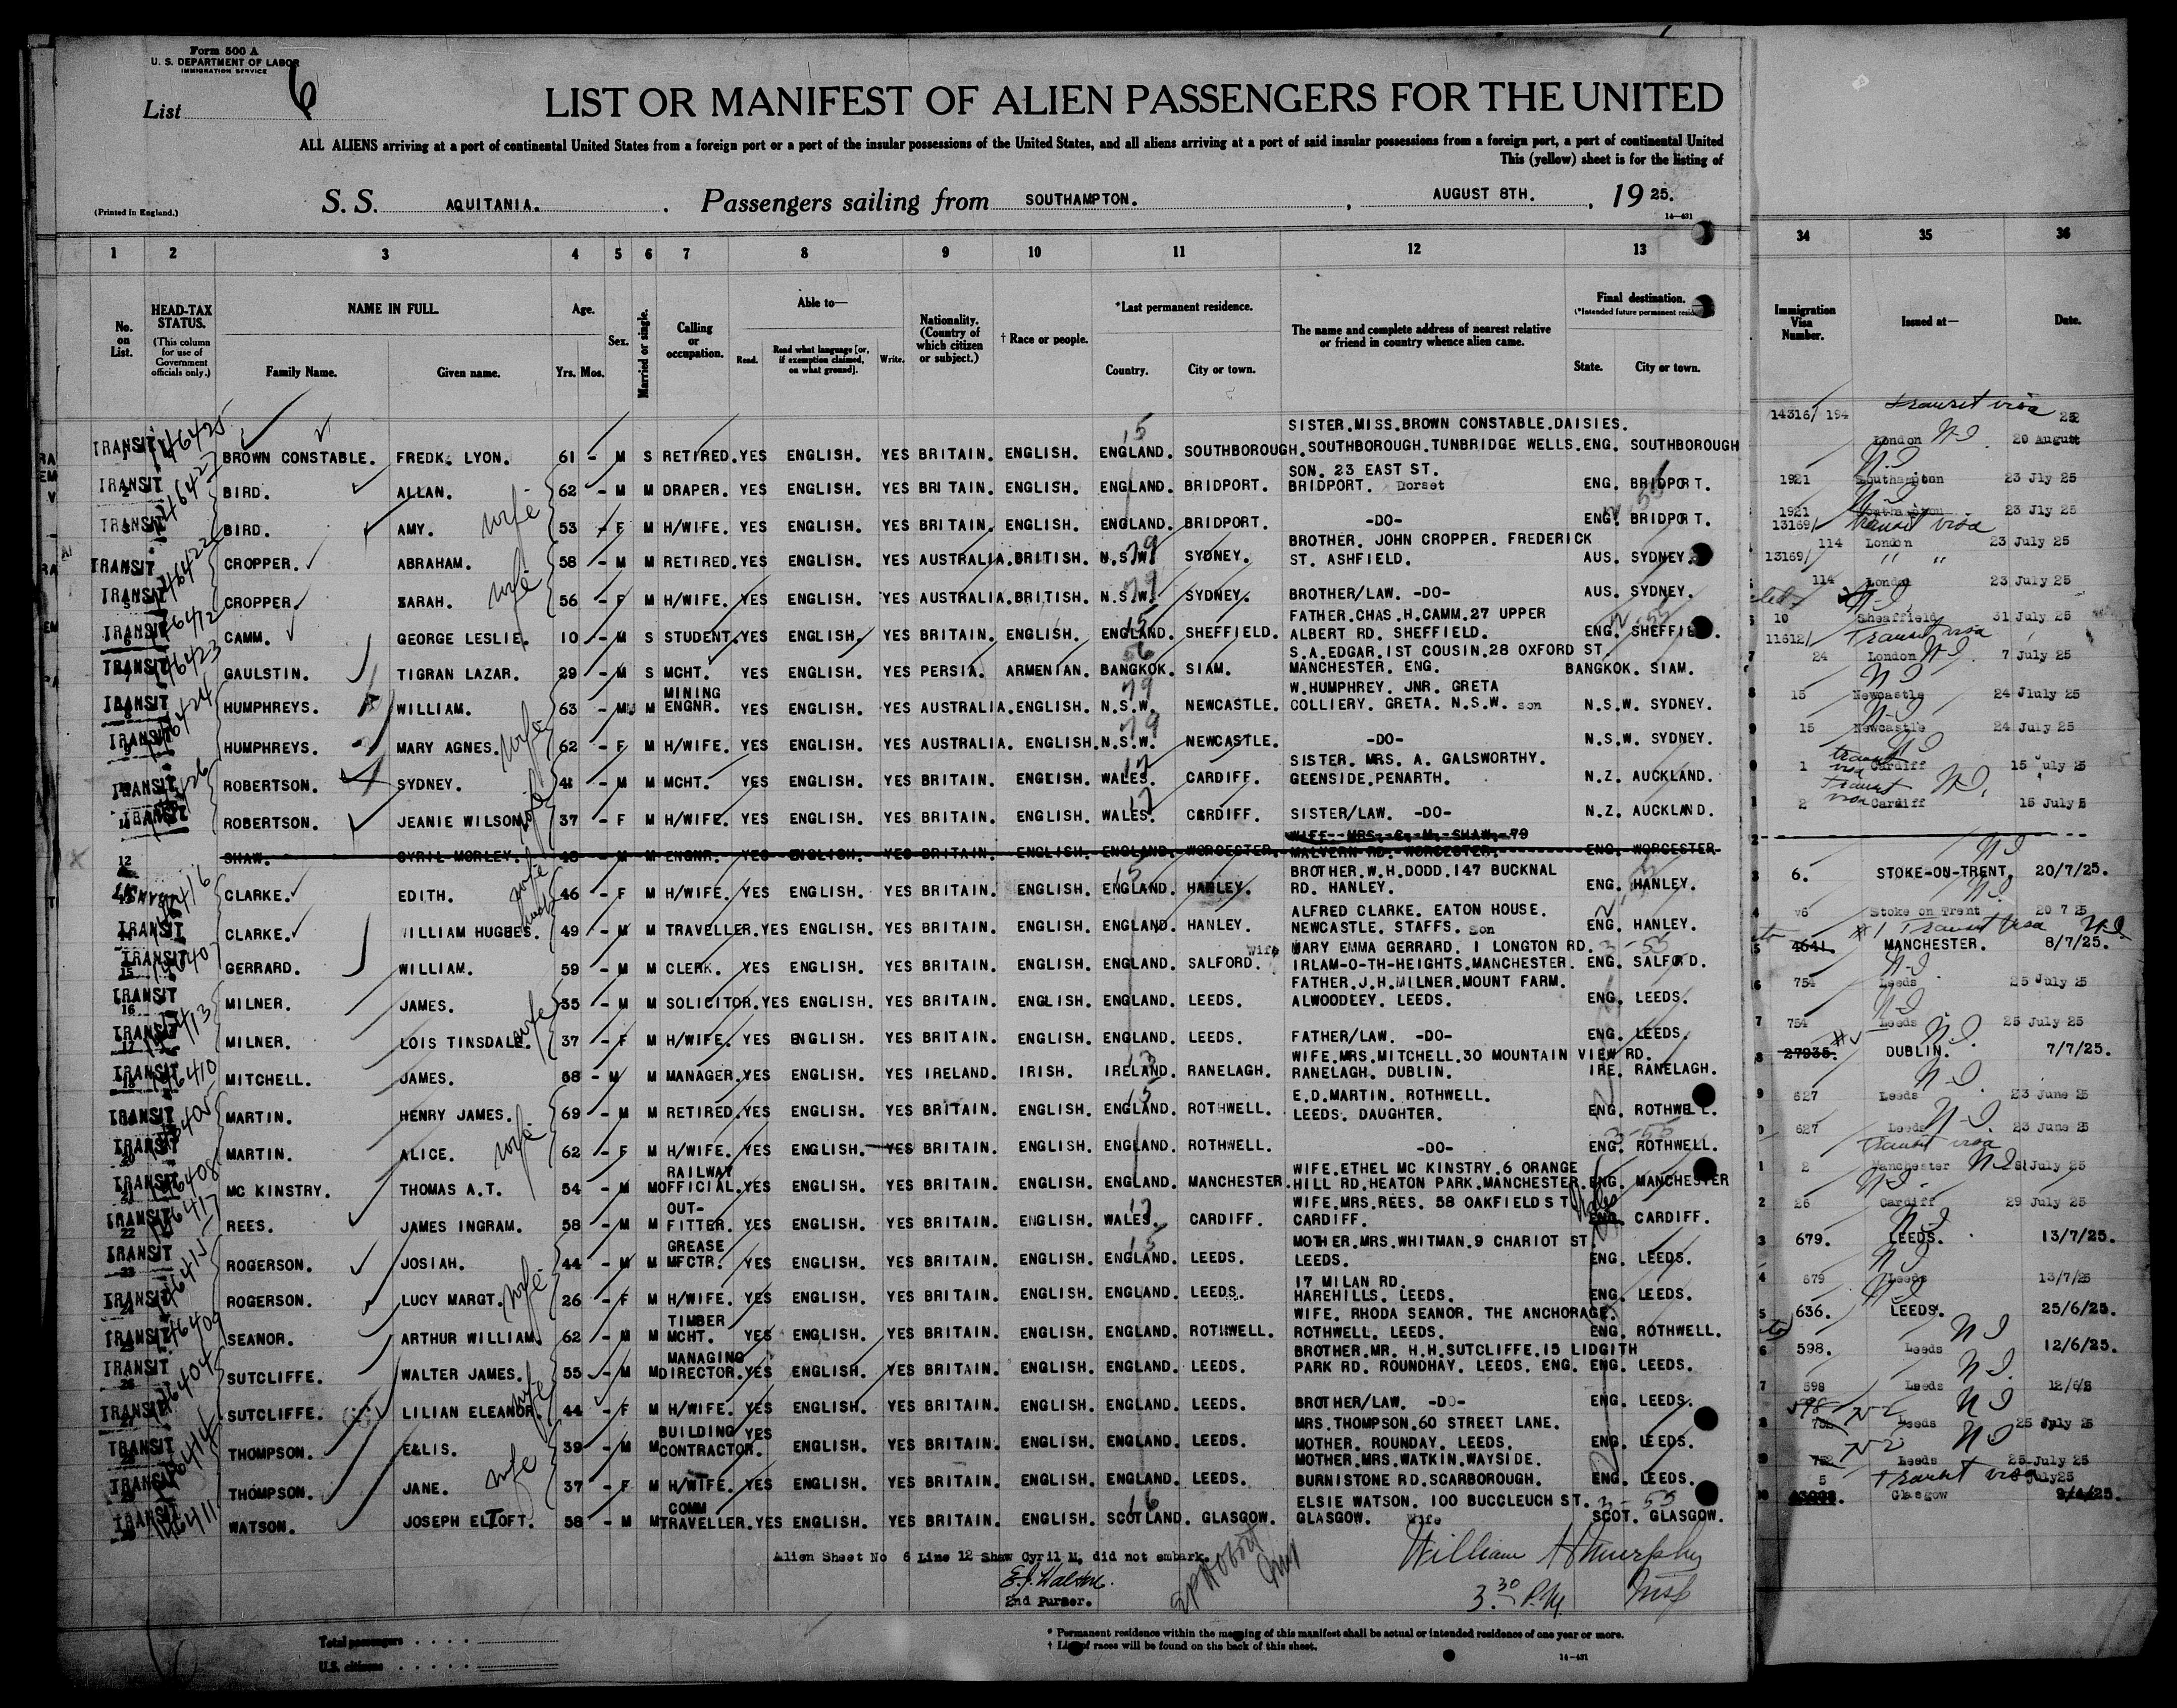 Form 500 A
U. S. DEPARTMENT OF LABOR
IMMIGRATION SERVICE
List 6
LIST OR MANIFEST OF ALIEN PASSENGERS FOR THE UNITED
ALL ALIENS arriving at a port of continental United States from a foreign port or a port of the insular possessions of the United States, and all aliens arriving at a port of said insular possessions from a foreign port, a port of continental United
This (yellow) sheet is for the listing of
(Printed in England.)
S. S. AQUITANIA. , Passengers sailing from SOUTHAMPTON. , AUGUST 8TH. , 19 25.
14-431
1 2 3 4 5 6 7 8 9 10 11 12 13 34 35 36
No. on List.
HEAD-TAX STATUS.
(This column for use of Government officials only.)
NAME IN FULL.
Family Name. Given name.
Age.
Yrs. Mos.
Sex.
Married or single.
Calling or occupation.
Able to—
Read. Read what language [or, if exemption claimed, on what ground]. Write.
Nationality. (Country of which citizen or subject.)
† Race or people.
*Last permanent residence.
Country. City or town.
The name and complete address of nearest relative or friend in country whence alien came.
Final destination.
(*Intended future permanent resid
State. City or town.
Immigration Visa Number.
Issued at—
Date.
TRANSIT 146425 BROWN CONSTABLE. FREDK. LYON. 61 - M S RETIRED. YES ENGLISH. YES BRITAIN. ENGLISH. ENGLAND. SOUTHBOROUGH. SISTER.MISS.BROWN CONSTABLE.DAISIES. SOUTHBOROUGH.TUNBRIDGE WELLS.ENG. SOUTHBOROUGH 14316/ 194 transit visa London N-I 20 August 25
TRANSIT 2 BIRD. ALLAN. 62 - M M DRAPER. YES ENGLISH. YES BRITAIN. ENGLISH. ENGLAND. BRIDPORT. SON. 23 EAST ST. BRIDPORT. Dorset ENG. BRIDPORT. 1921 Southampton 23 Jly 25
TRANSIT 3 BIRD. AMY. wife 53 - F M H/WIFE. YES ENGLISH. YES BRITAIN. ENGLISH. ENGLAND. BRIDPORT. -DO- ENG. BRIDPORT. 1921 Southampton 23 Jly 25
TRANSIT 146422 CROPPER. ABRAHAM. 58 - M M RETIRED. YES ENGLISH. YES AUSTRALIA. BRITISH. N.S.W. 79 SYDNEY. BROTHER. JOHN CROPPER. FREDERICK ST. ASHFIELD. AUS. SYDNEY. 13169/ 114 transit visa London 23 July 25
TRANSIT 5 CROPPER. SARAH. wife 56 - F M H/WIFE. YES ENGLISH. YES AUSTRALIA. BRITISH. N.S.W. 79 SYDNEY. BROTHER/LAW. -DO- AUS. SYDNEY. 13169/ 114 " " London 23 July 25
TRANSIT 6 CAMM. GEORGE LESLIE. 10 - M S STUDENT. YES ENGLISH. YES BRITAIN. ENGLISH. ENGLAND. 15 SHEFFIELD. FATHER.CHAS.H.CAMM.27 UPPER ALBERT RD. SHEFFIELD. ENG. SHEFFIE . 10 Sheaffield 31 July 25
TRANSIT 7 146423 GAULSTIN. TIGRAN LAZAR. 29 - M S MCHT. YES ENGLISH. YES PERSIA. ARMENIAN. BANGKOK. SIAM. S.A.EDGAR.IST COUSIN.28 OXFORD ST. MANCHESTER. ENG. BANGKOK. SIAM. 11612/ 24 Transit visa London N-I 7 July 25
TRANSIT 8 146424 HUMPHREYS. WILLIAM. 63 - M M MINING ENGNR. YES ENGLISH. YES AUSTRALIA. ENGLISH. N.S.W. 79 NEWCASTLE. W.HUMPHREY. JNR. GRETA COLLIERY. GRETA. N.S.W. son N.S.W. SYDNEY. 15 Newcastle 24 Jluly 25
TRANSIT 9 HUMPHREYS. MARY AGNES. wife 62 - F M H/WIFE. YES ENGLISH. YES AUSTRALIA. ENGLISH. N.S.W. 79 NEWCASTLE. -DO- N.S.W. SYDNEY. 15 Newcastle 24 July 25
TRANSIT 10 ROBERTSON. SYDNEY. 41 - M M MCHT. YES ENGLISH. YES BRITAIN. ENGLISH. WALES. 17 CARDIFF. SISTER. MRS. A. GALSWORTHY. GLENSIDE.PENARTH. N.Z. AUCKLAND. 1 transit visa Cardiff 15 July 25
TRANSIT 11 ROBERTSON. JEANIE WILSON. wife 37 - F M H/WIFE. YES ENGLISH. YES BRITAIN. ENGLISH. WALES. 17 CARDIFF. SISTER/LAW. -DO- N.Z. AUCKLAND. 2 Transit visa Cardiff N-I. 15 July 5
12 SHAW. CYRIL MORLEY. 43 - M M ENGNR. YES ENGLISH. YES BRITAIN. ENGLISH. ENGLAND. WORCESTER. WIFE. MRS. C. M. SHAW. 79 MALVERN RD. WORCESTER. ENG. WORCESTER
13 146416 CLARKE. EDITH. wife 46 - F M H/WIFE. YES ENGLISH. YES BRITAIN. ENGLISH. ENGLAND. 15 HANLEY. BROTHER.W.H.DODD.147 BUCKNAL RD. HANLEY. ENG. HANLEY. 6. STOKE-ON-TRENT. 20/7/25.
TRANSIT 14 CLARKE. WILLIAM HUGHES. 49 - M M TRAVELLER. YES ENGLISH. YES BRITAIN. ENGLISH. ENGLAND. HANLEY. ALFRED CLARKE. EATON HOUSE. NEWCASTLE. STAFFS. son ENG. HANLEY. Stoke on Trent 20 7 25
TRANSIT 15 GERRARD. WILLIAM. 59 - M M CLERK. YES ENGLISH. YES BRITAIN. ENGLISH. ENGLAND. SALFORD. Wife MARY EMMA GERRARD. 1 LONGTON RD. IRLAM-O-TH-HEIGHTS.MANCHESTER. ENG. SALFORD. 4641. Transit Visa MANCHESTER. 8/7/25.
TRANSIT 16 MILNER. JAMES. 35 - M M SOLICITOR. YES ENGLISH. YES BRITAIN. ENGLISH. ENGLAND. LEEDS. FATHER.J.H.MILNER.MOUNT FARM. ALWOODLEY. LEEDS. ENG. LEEDS. 754 Leeds 25 July 25
TRANSIT 17 146413 MILNER. LOIS TINSDALE. wife 37 - F M H/WIFE. YES ENGLISH. YES BRITAIN. ENGLISH. ENGLAND. LEEDS. FATHER/LAW. -DO- ENG. LEEDS. 754 Leeds 25 July 25
TRANSIT 18 146410 MITCHELL. JAMES. 58 - M M MANAGER. YES ENGLISH. YES IRELAND. IRISH. IRELAND. 13 RANELAGH. WIFE.MRS.MITCHELL.30 MOUNTAIN VIEW RD. RANELAGH. DUBLIN. IRE. RANELAGH. 27935. DUBLIN. 7/7/25.
TRANSIT 146405 MARTIN. HENRY JAMES. 69 - M M RETIRED. YES ENGLISH. YES BRITAIN. ENGLISH. ENGLAND. 15 ROTHWELL. E.D.MARTIN. ROTHWELL. LEEDS. DAUGHTER. ENG. ROTHWELL. 627 Leeds 23 June 25
TRANSIT 20 MARTIN. ALICE. wife 62 - F M H/WIFE. YES ENGLISH. YES BRITAIN. ENGLISH. ENGLAND. ROTHWELL. -DO- ENG. ROTHWELL. 627 Leeds 23 June 25
TRANSIT 21 146408 MC KINSTRY. THOMAS A.T. 54 - M M RAILWAY OFFICIAL. YES ENGLISH. YES BRITAIN. ENGLISH. ENGLAND. MANCHESTER. WIFE.ETHEL MC KINSTRY.6 ORANGE HILL RD.HEATON PARK.MANCHESTER. ENG. MANCHESTER 2 Transit visa Manchester N-I July 25
TRANSIT 22 146417 REES. JAMES INGRAM. 58 - M M OUT-FITTER. YES ENGLISH. YES BRITAIN. ENGLISH. WALES. 17 CARDIFF. WIFE.MRS.REES. 58 OAKFIELD ST CARDIFF. Wales ENG. CARDIFF. 26 Cardiff 29 July 25
TRANSIT 23 146415 ROGERSON. JOSIAH. 44 - M M GREASE MFCTR. YES ENGLISH. YES BRITAIN. ENGLISH. ENGLAND. 15 LEEDS. MOTHER.MRS.WHITMAN.9 CHARIOT ST. LEEDS. ENG. LEEDS. 679. LEEDS. 13/7/25.
TRANSIT 24 ROGERSON. LUCY MARGT. wife 26 - F M H/WIFE. YES ENGLISH. YES BRITAIN. ENGLISH. ENGLAND. LEEDS. 17 MILAN RD. HAREHILLS. LEEDS. ENG. LEEDS. 679 Leeds 13/7/25
TRANSIT 25 146409 SEANOR. ARTHUR WILLIAM. 62 - M M TIMBER MCHT. YES ENGLISH. YES BRITAIN. ENGLISH. ENGLAND. ROTHWELL. WIFE. RHODA SEANOR. THE ANCHORAGE. ROTHWELL. LEEDS. ENG. ROTHWELL. 636. LEEDS. 25/6/25.
TRANSIT 26 146404 SUTCLIFFE. WALTER JAMES. 55 - M M MANAGING DIRECTOR. YES ENGLISH. YES BRITAIN. ENGLISH. ENGLAND. LEEDS. BROTHER.MR. H.H.SUTCLIFFE.15 LIDGITH PARK RD. ROUNDHAY. LEEDS. ENG. ENG. LEEDS. 598. Leeds 12/6/25.
TRANSIT 27 SUTCLIFFE. LILIAN ELEANOR. wife 44 - F M H/WIFE. YES ENGLISH. YES BRITAIN. ENGLISH. ENGLAND. LEEDS. BROTHER/LAW. -DO- ENG. LEEDS. 598 Leeds 12/6/5
TRANSIT 28 146414 THOMPSON. ELLIS. 39 - M M BUILDING CONTRACTOR. YES ENGLISH. YES BRITAIN. ENGLISH. ENGLAND. LEEDS. MRS.THOMPSON.60 STREET LANE. MOTHER. ROUNDAY. LEEDS. ENG. LEEDS. 752 Leeds 25 July 25
TRANSIT THOMPSON. JANE. wife 37 - F M H/WIFE. YES ENGLISH. YES BRITAIN. ENGLISH. ENGLAND. LEEDS. MOTHER.MRS.WATKIN.WAYSIDE. BURNISTONE RD.SCARBOROUGH. ENG. LEEDS. 752 Leeds 25 July 25
TRANSIT 146411 WATSON. JOSEPH ELTOFT. 58 - M M COMM TRAVELLER. YES ENGLISH. YES BRITAIN. ENGLISH. SCOTLAND. 16 GLASGOW. ELSIE WATSON. 100 BUCCLEUCH ST. GLASGOW. Wife SCOT. GLASGOW. 5 Transit visa Glasgow July25
Alien Sheet No 6 Line 12 Shaw Cyril M. did not embark.
E.J. Walton.
2nd Purser.
William H Murphy
Insp
3.30 P.M.
Total passengers
U.S. citizens
* Permanent residence within the meaning of this manifest shall be actual or intended residence of one year or more.
† List of races will be found on the back of this sheet.
14-431